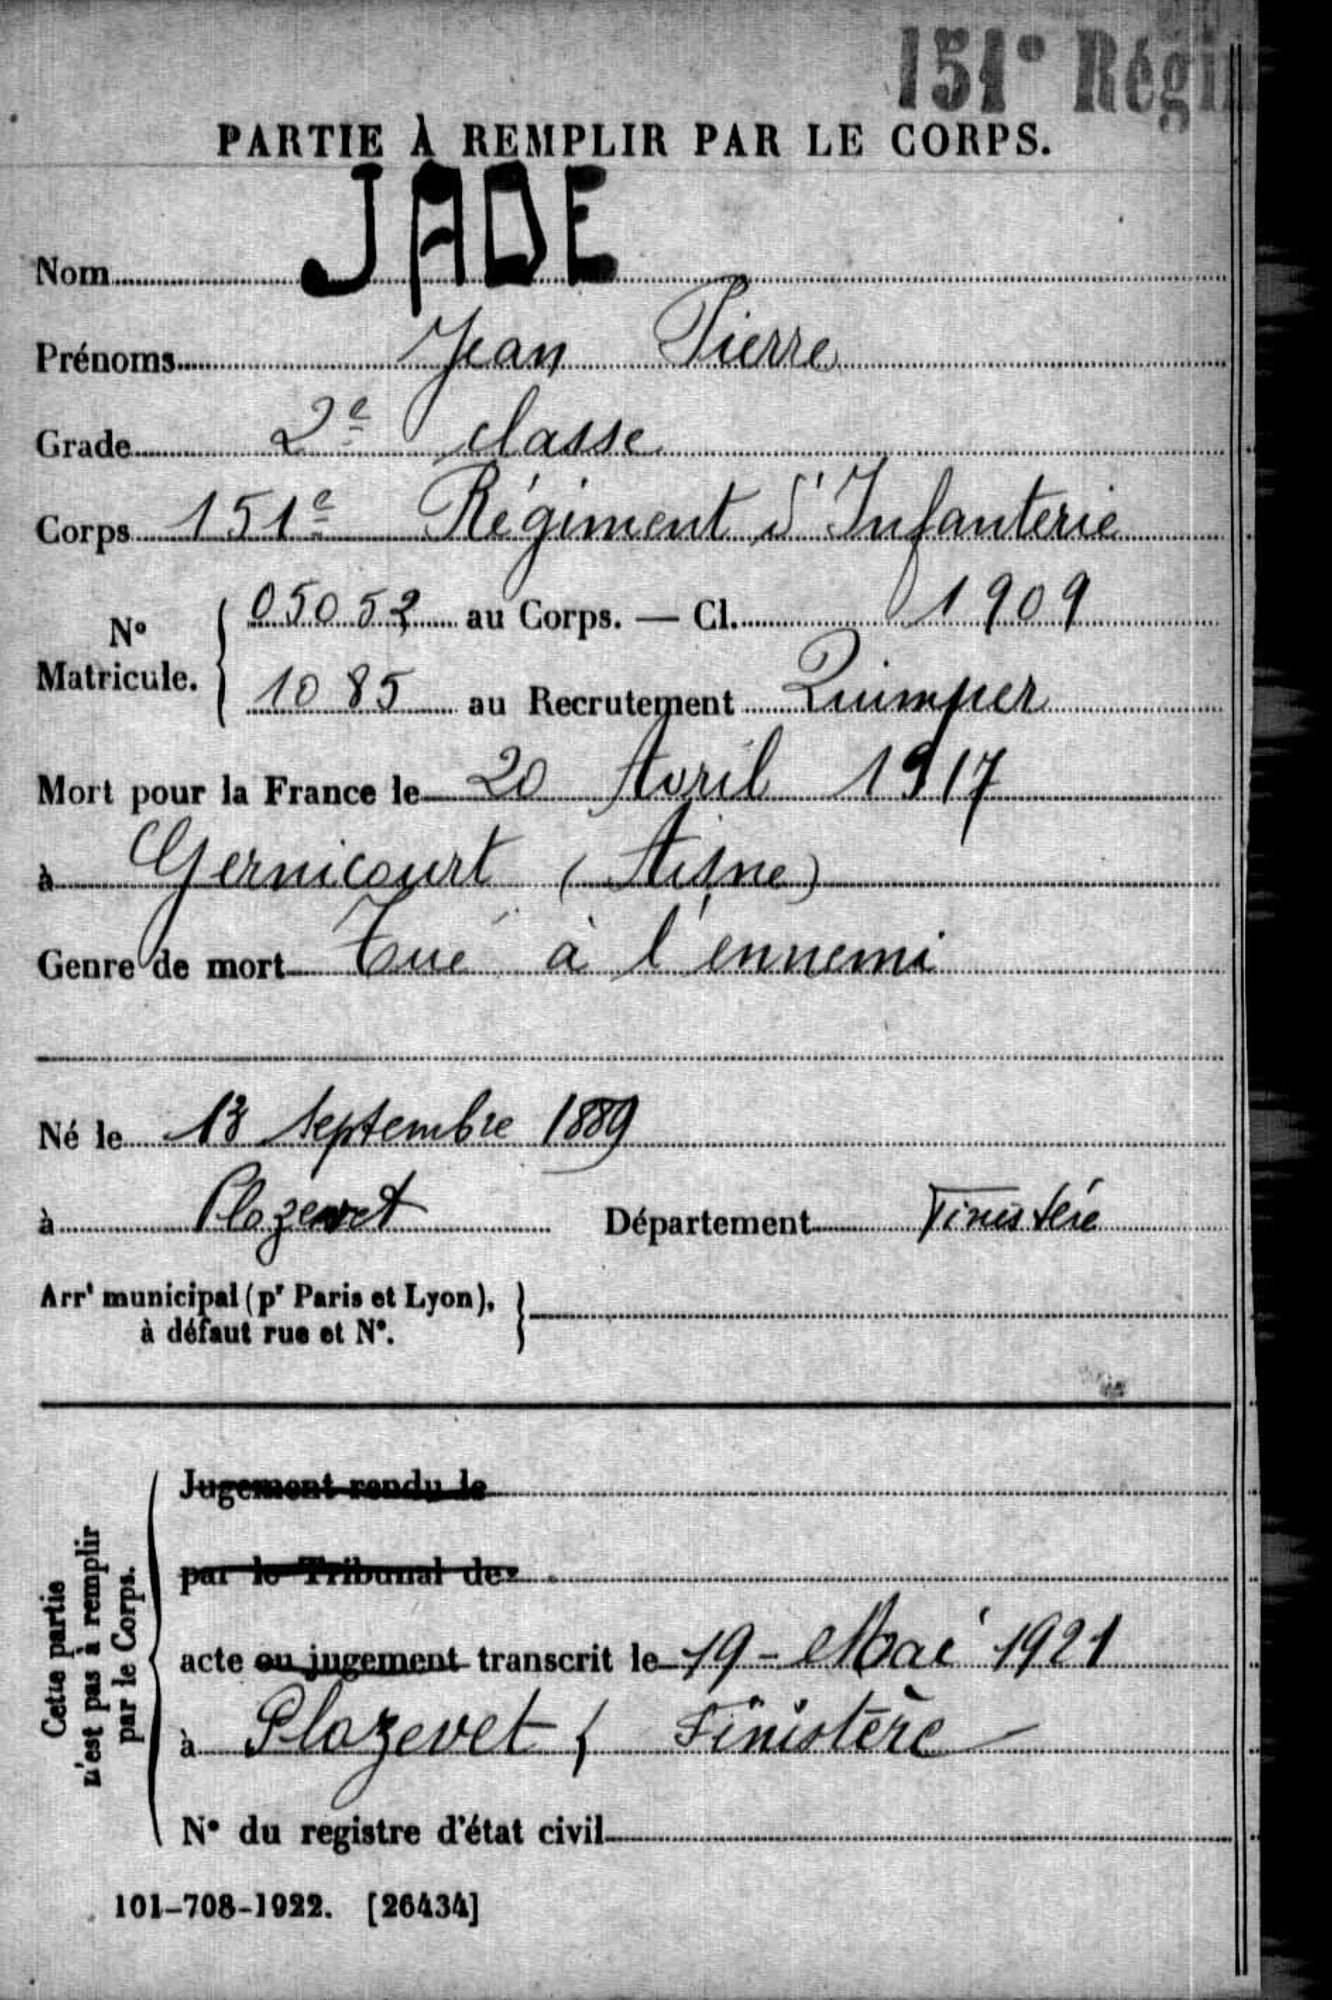 151e Régi
PARTIE À REMPLIR PAR LE CORPS.
Nom JADE
Prénoms Jean Pierre
Grade 2e classe
Corps 151e Régiment d'Infanterie
No Matricule. 05052 au Corps. — Cl. 1909
1085 au Recrutement Quimper
Mort pour la France le 20 Avril 1917
à Gernicourt (Aisne)
Genre de mort Tué à l'ennemi
Né le 13 septembre 1889
à Plozevet Département Finistère
Arrt municipal (pr Paris et Lyon),
à défaut rue et N°.
Cette partie
n'est pas à remplir
par le Corps.
Jugement rendu le
par le Tribunal de
acte ou jugement transcrit le 19 - Mai 1921
à Plozevet ( Finistère
N° du registre d'état civil
101-708-1922. [26434]